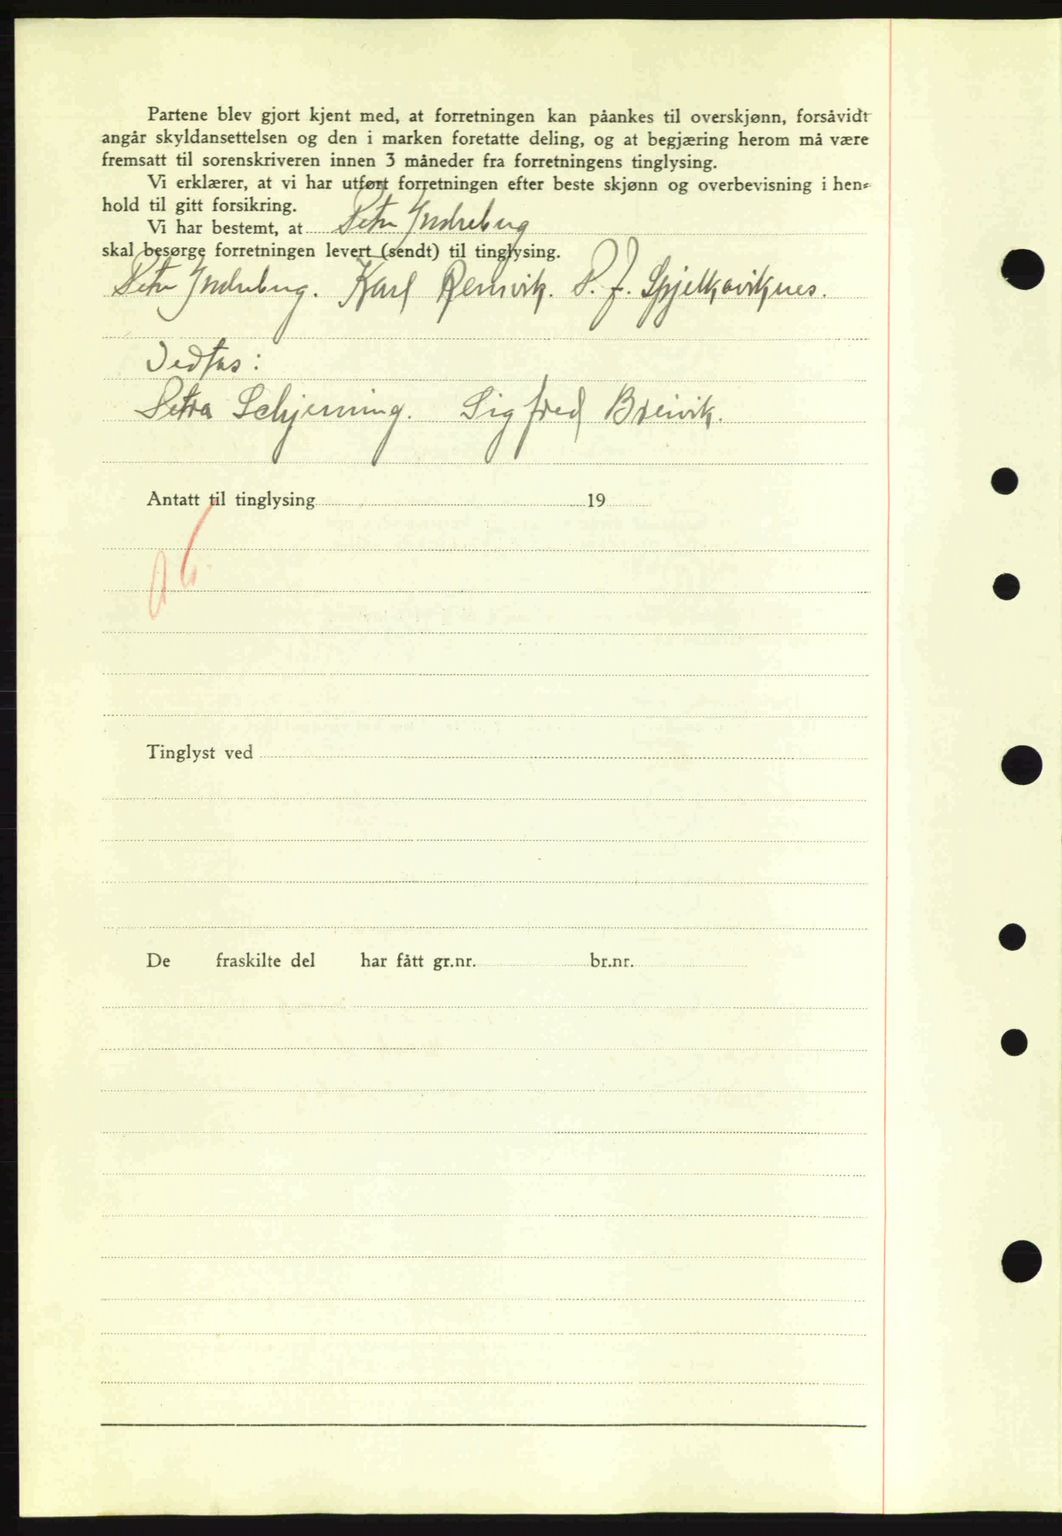 Partene blev gjort kjent med, at forretningen kan påankes til overskjønn, forsåvidt
angår skyldansettelsen og den i marken foretatte deling, og at begjæring herom må være
fremsatt til sorenskriveren innen 3 måneder fra forretningens tinglysing.
Vi erklærer, at vi har utført forretningen efter beste skjønn og overbevisning i hen-
hold til gitt forsikring.
Vi har bestemt, at Petr Indrebug
skal besørge forretningen levert (sendt) til tinglysing.
Petr Indrebug. Karl Remvik. P. J. Spjelkaviknes.
Vedtas:
Petra Schjerning. Sigfred Breivik.
Antatt til tinglysing 19
Tinglyst ved
De fraskilte del har fått gr.nr. br.nr.